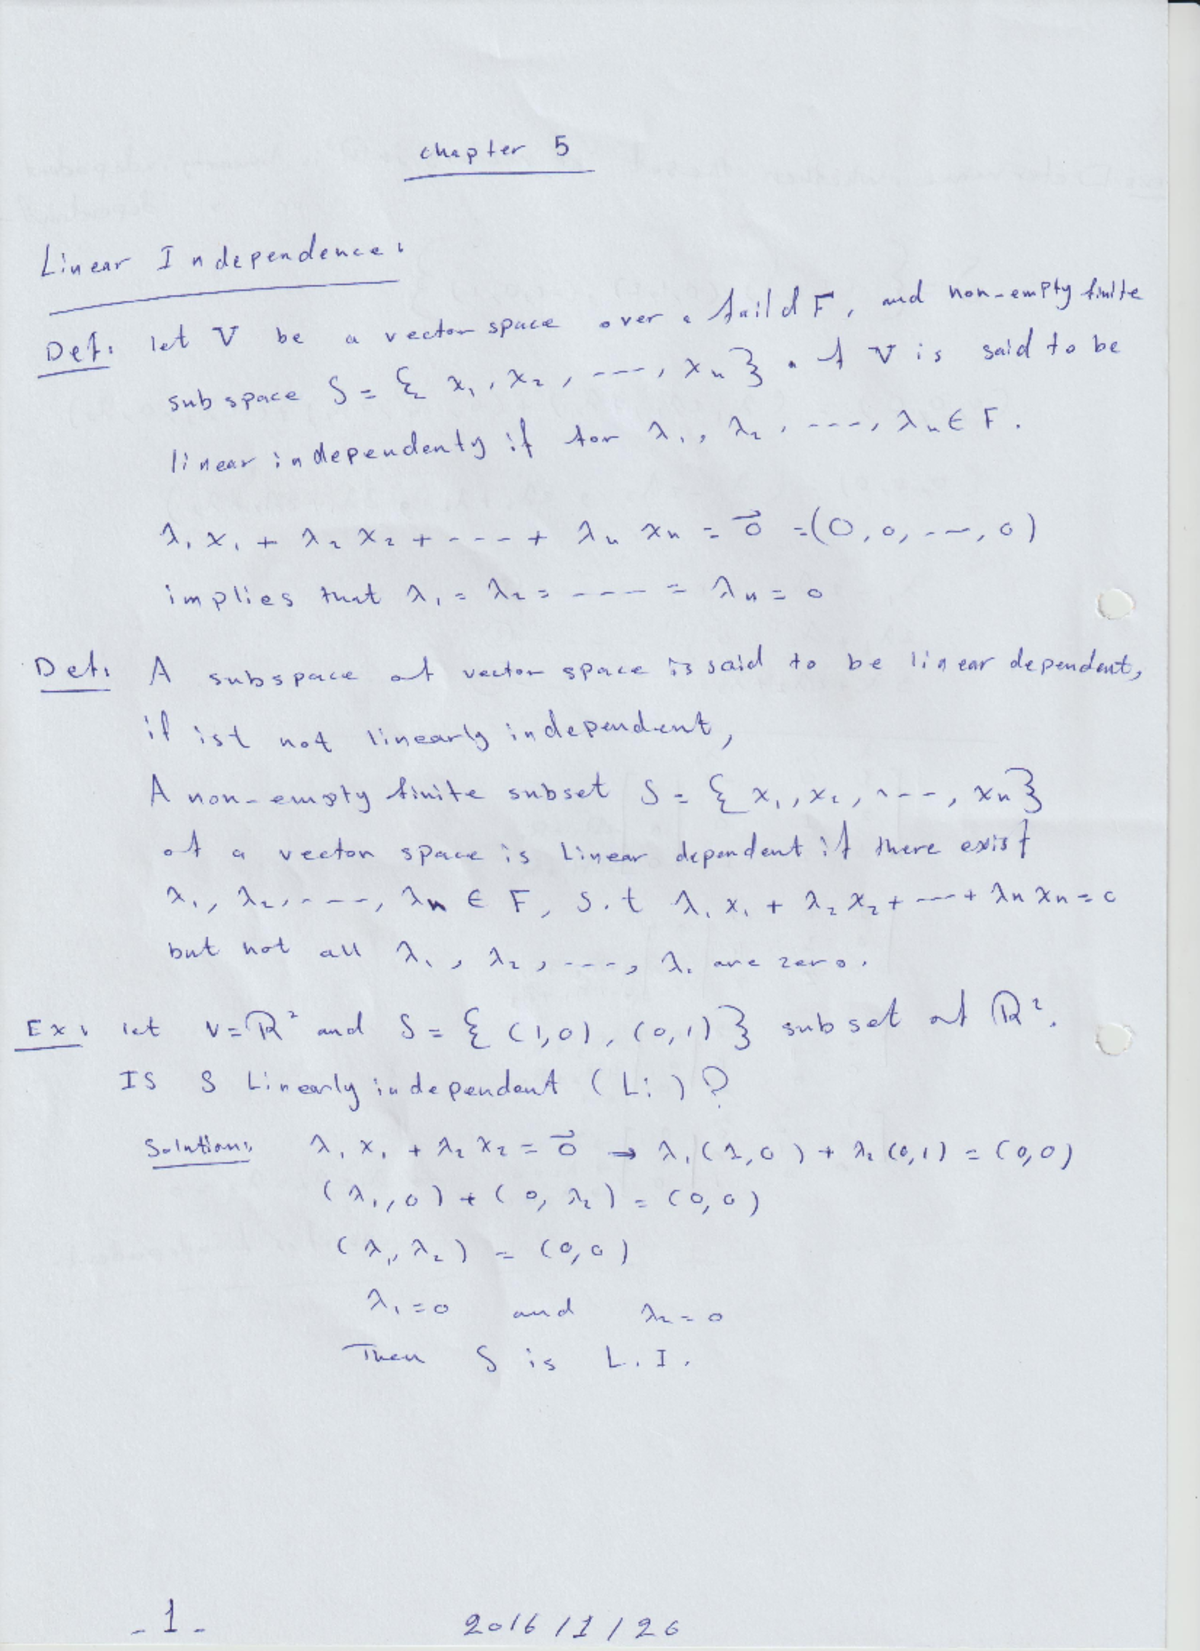 chapter 5
Linear Independence:
Def: let V be a vector space over a faild F, and non-empty finite
subspace S = { x₁, x₂, ----, xₙ } of V is said to be
linear independenty if for λ₁, λ₂, ----, λₙ ∈ F.
λ₁x₁ + λ₂x₂ + ---- + λₙxₙ = 0⃗ = (0, 0, ---, 0)
implies that λ₁ = λ₂ = ---- = λₙ = 0
Def: A subspace of vector space is said to be linear dependent,
if ist not linearly independent,
A non-empty finite subset S = { x₁, x₂, ---, xₙ }
of a vector space is Linear dependent if there exist
λ₁, λ₂, ----, λₙ ∈ F, S.t λ₁x₁ + λ₂x₂ + ---- + λₙxₙ = 0
but not all λ₁, λ₂, ----, λ. are zero.
Ex: let V = ℝ² and S = { (1,0), (0,1) } subset of ℝ².
IS S Linearly independent (Li)?
Solution: λ₁x₁ + λ₂x₂ = 0⃗ → λ₁(1,0) + λ₂(0,1) = (0,0)
(λ₁,0) + (0,λ₂) = (0,0)
(λ₁,λ₂) = (0,0)
λ₁=0 and λ₂=0
Then S is L.I.
-1- 2016/1/26